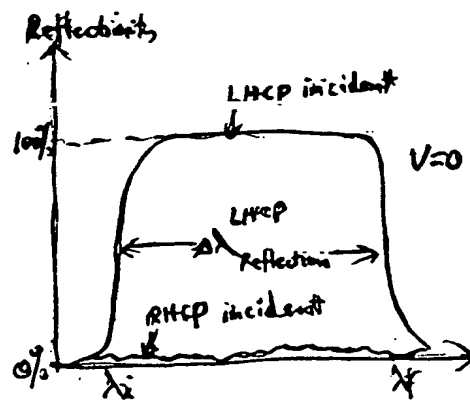 Reflectivity
LHCP incident
100%
V=0
LHCP
Δλ
Reflection
RHCP incident
0%
λi
λf